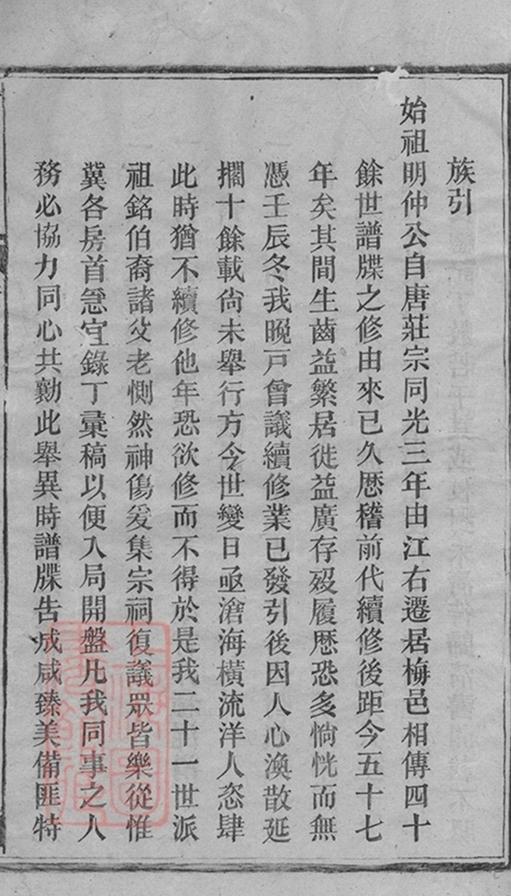 族引
始祖明仲公自唐莊宗同光三年由江右遷居梅邑相傳四十
餘世譜牒之修由來已久歴稽前代續修後距今五十七
年矣其間生齒益繁居徙益廣存歿履歴恐多惝恍而無
憑壬辰冬我晚戸曾議續修業已發引後因人心渙散延
擱十餘載尙未舉行方今世變日亟滄海橫流洋人恣肆
此時猶不續修他年恐欲修而不得於是我二十一世派
祖銘伯裔諸父老惻然神傷爰集宗祠復議眾皆樂從惟
冀各房首急宜錄丁彙稿以便入局開盤凡我同事之人
務必協力同心共勷此舉異時譜牒告成咸臻美備匪特